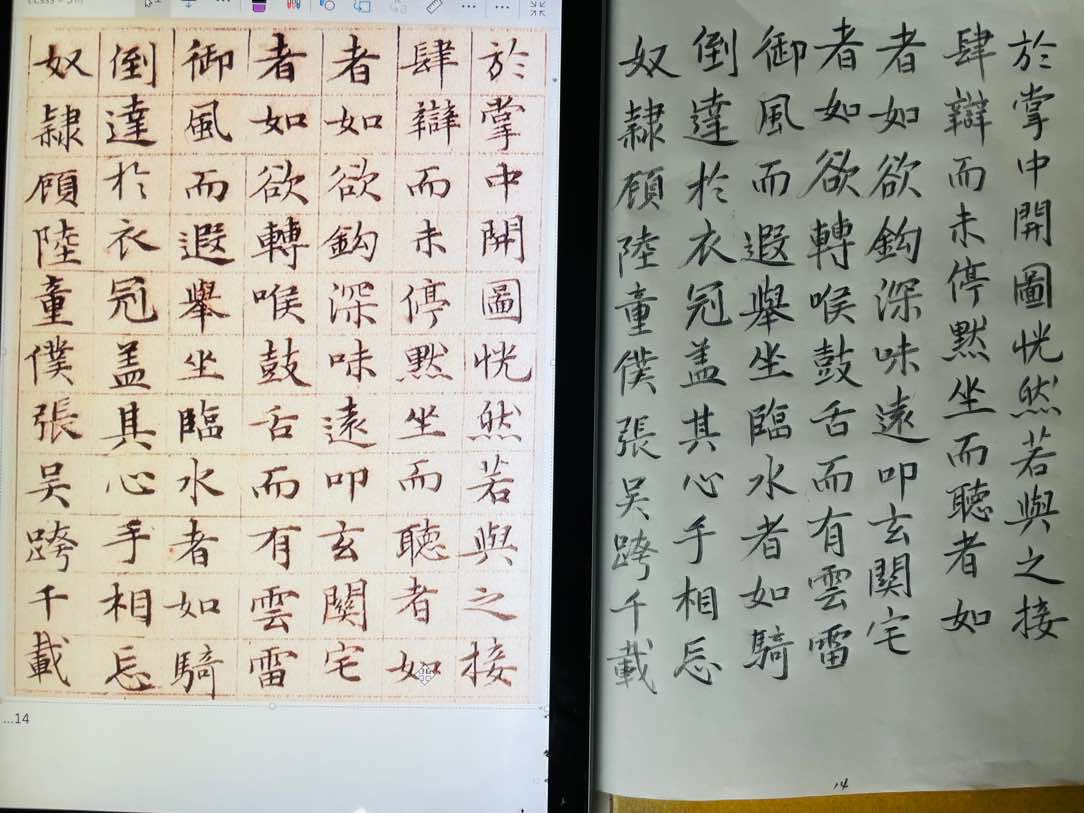 於掌中開圖恍然若與之接
肆辯而未停默坐而聽者如
者如欲鈎深味遠叩玄關宅
者如欲轉喉鼓舌而有雲雷
御風而遐舉坐臨水者如騎
倒達於衣冠盖其心手相忘
奴隸顧陸童僕張吴跨千載
...14
於掌中開圖恍然若與之接
肆辯而未停默坐而聽者如
者如欲鈎深味遠叩玄關宅
者如欲轉喉鼓舌而有雲雷
御風而遐舉坐臨水者如騎
倒達於衣冠盖其心手相忘
奴隸顧陸童僕張吴跨千載
14